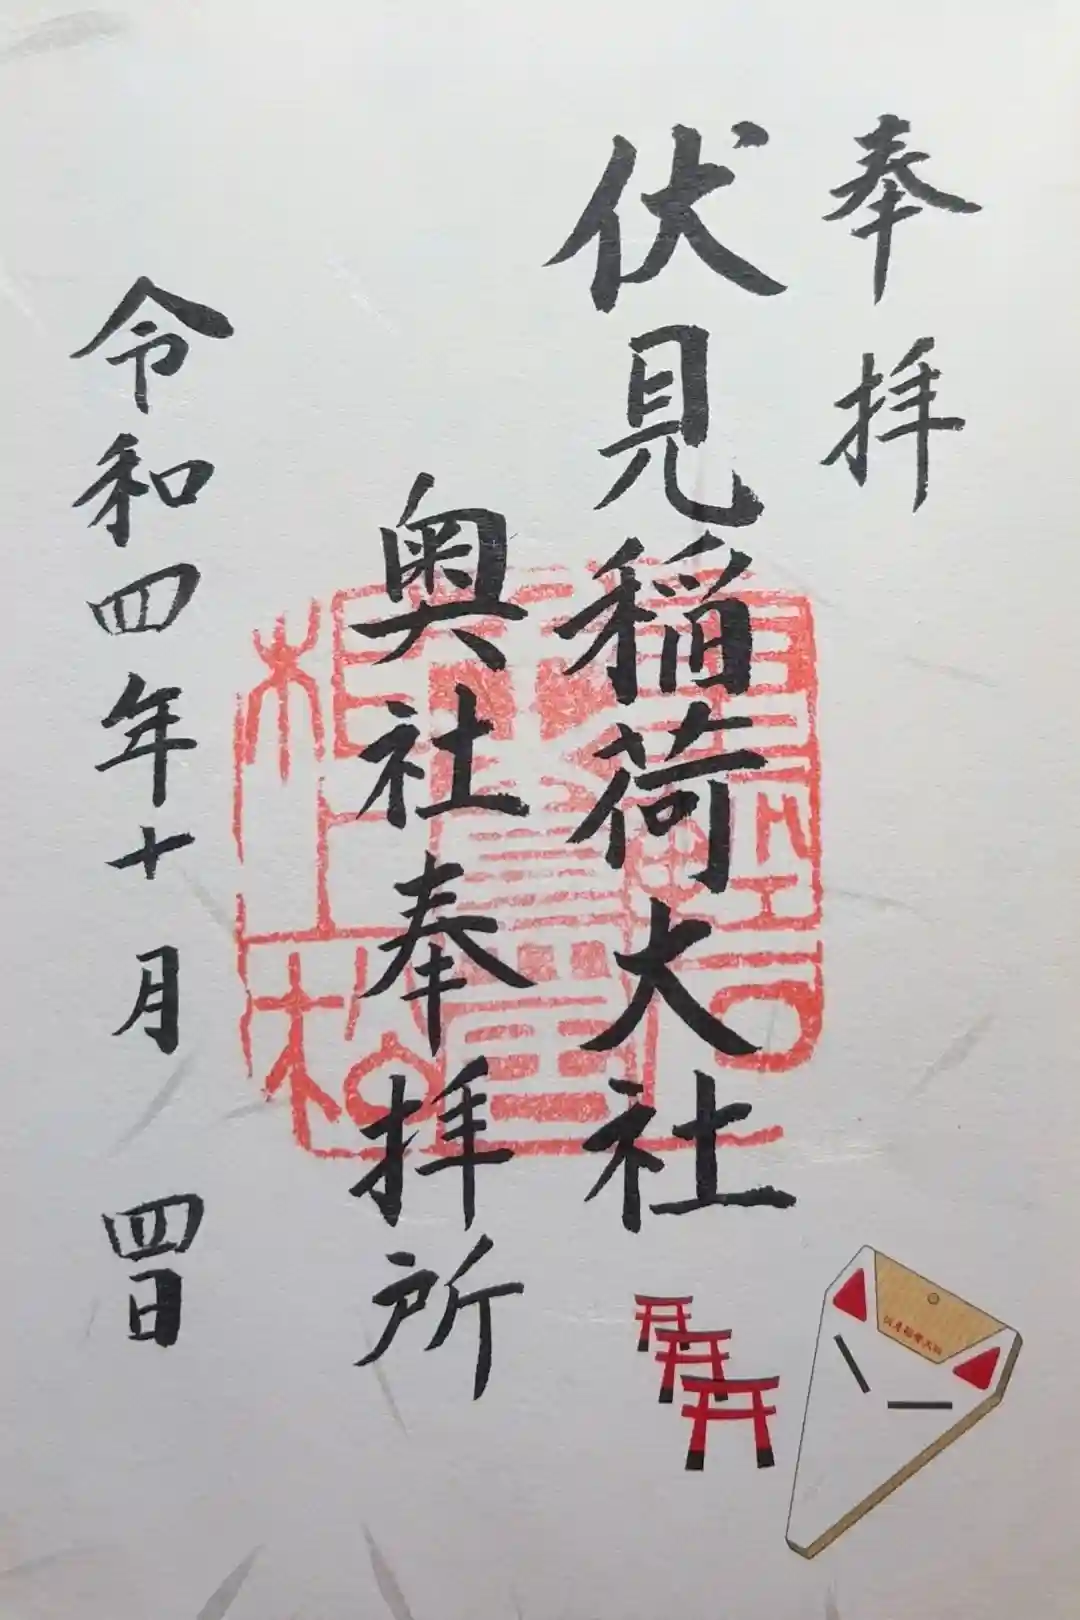 奉拝
伏見稲荷大社
奥社奉拝所
令和四年十月四日
伏見稲荷大社